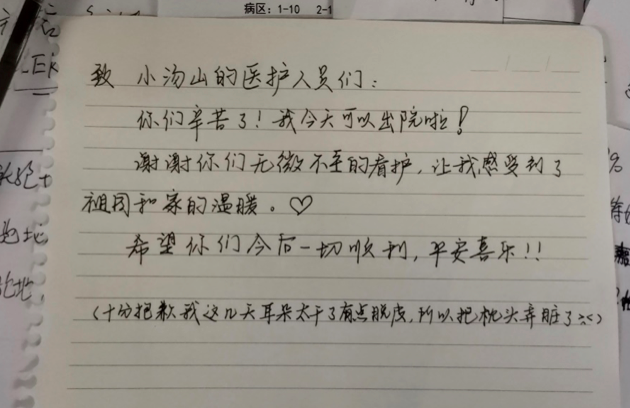 病区：1-10 2-1
致 小汤山的医护人员们：
你们辛苦了！我今天可以出院啦！
谢谢你们无微不至的看护，让我感受到了
祖国和家的温暖。♡
希望你们今后一切顺利，平安喜乐！！
（十分抱歉我这几天耳朵太干了有点脱皮，所以把枕头弄脏了:<）